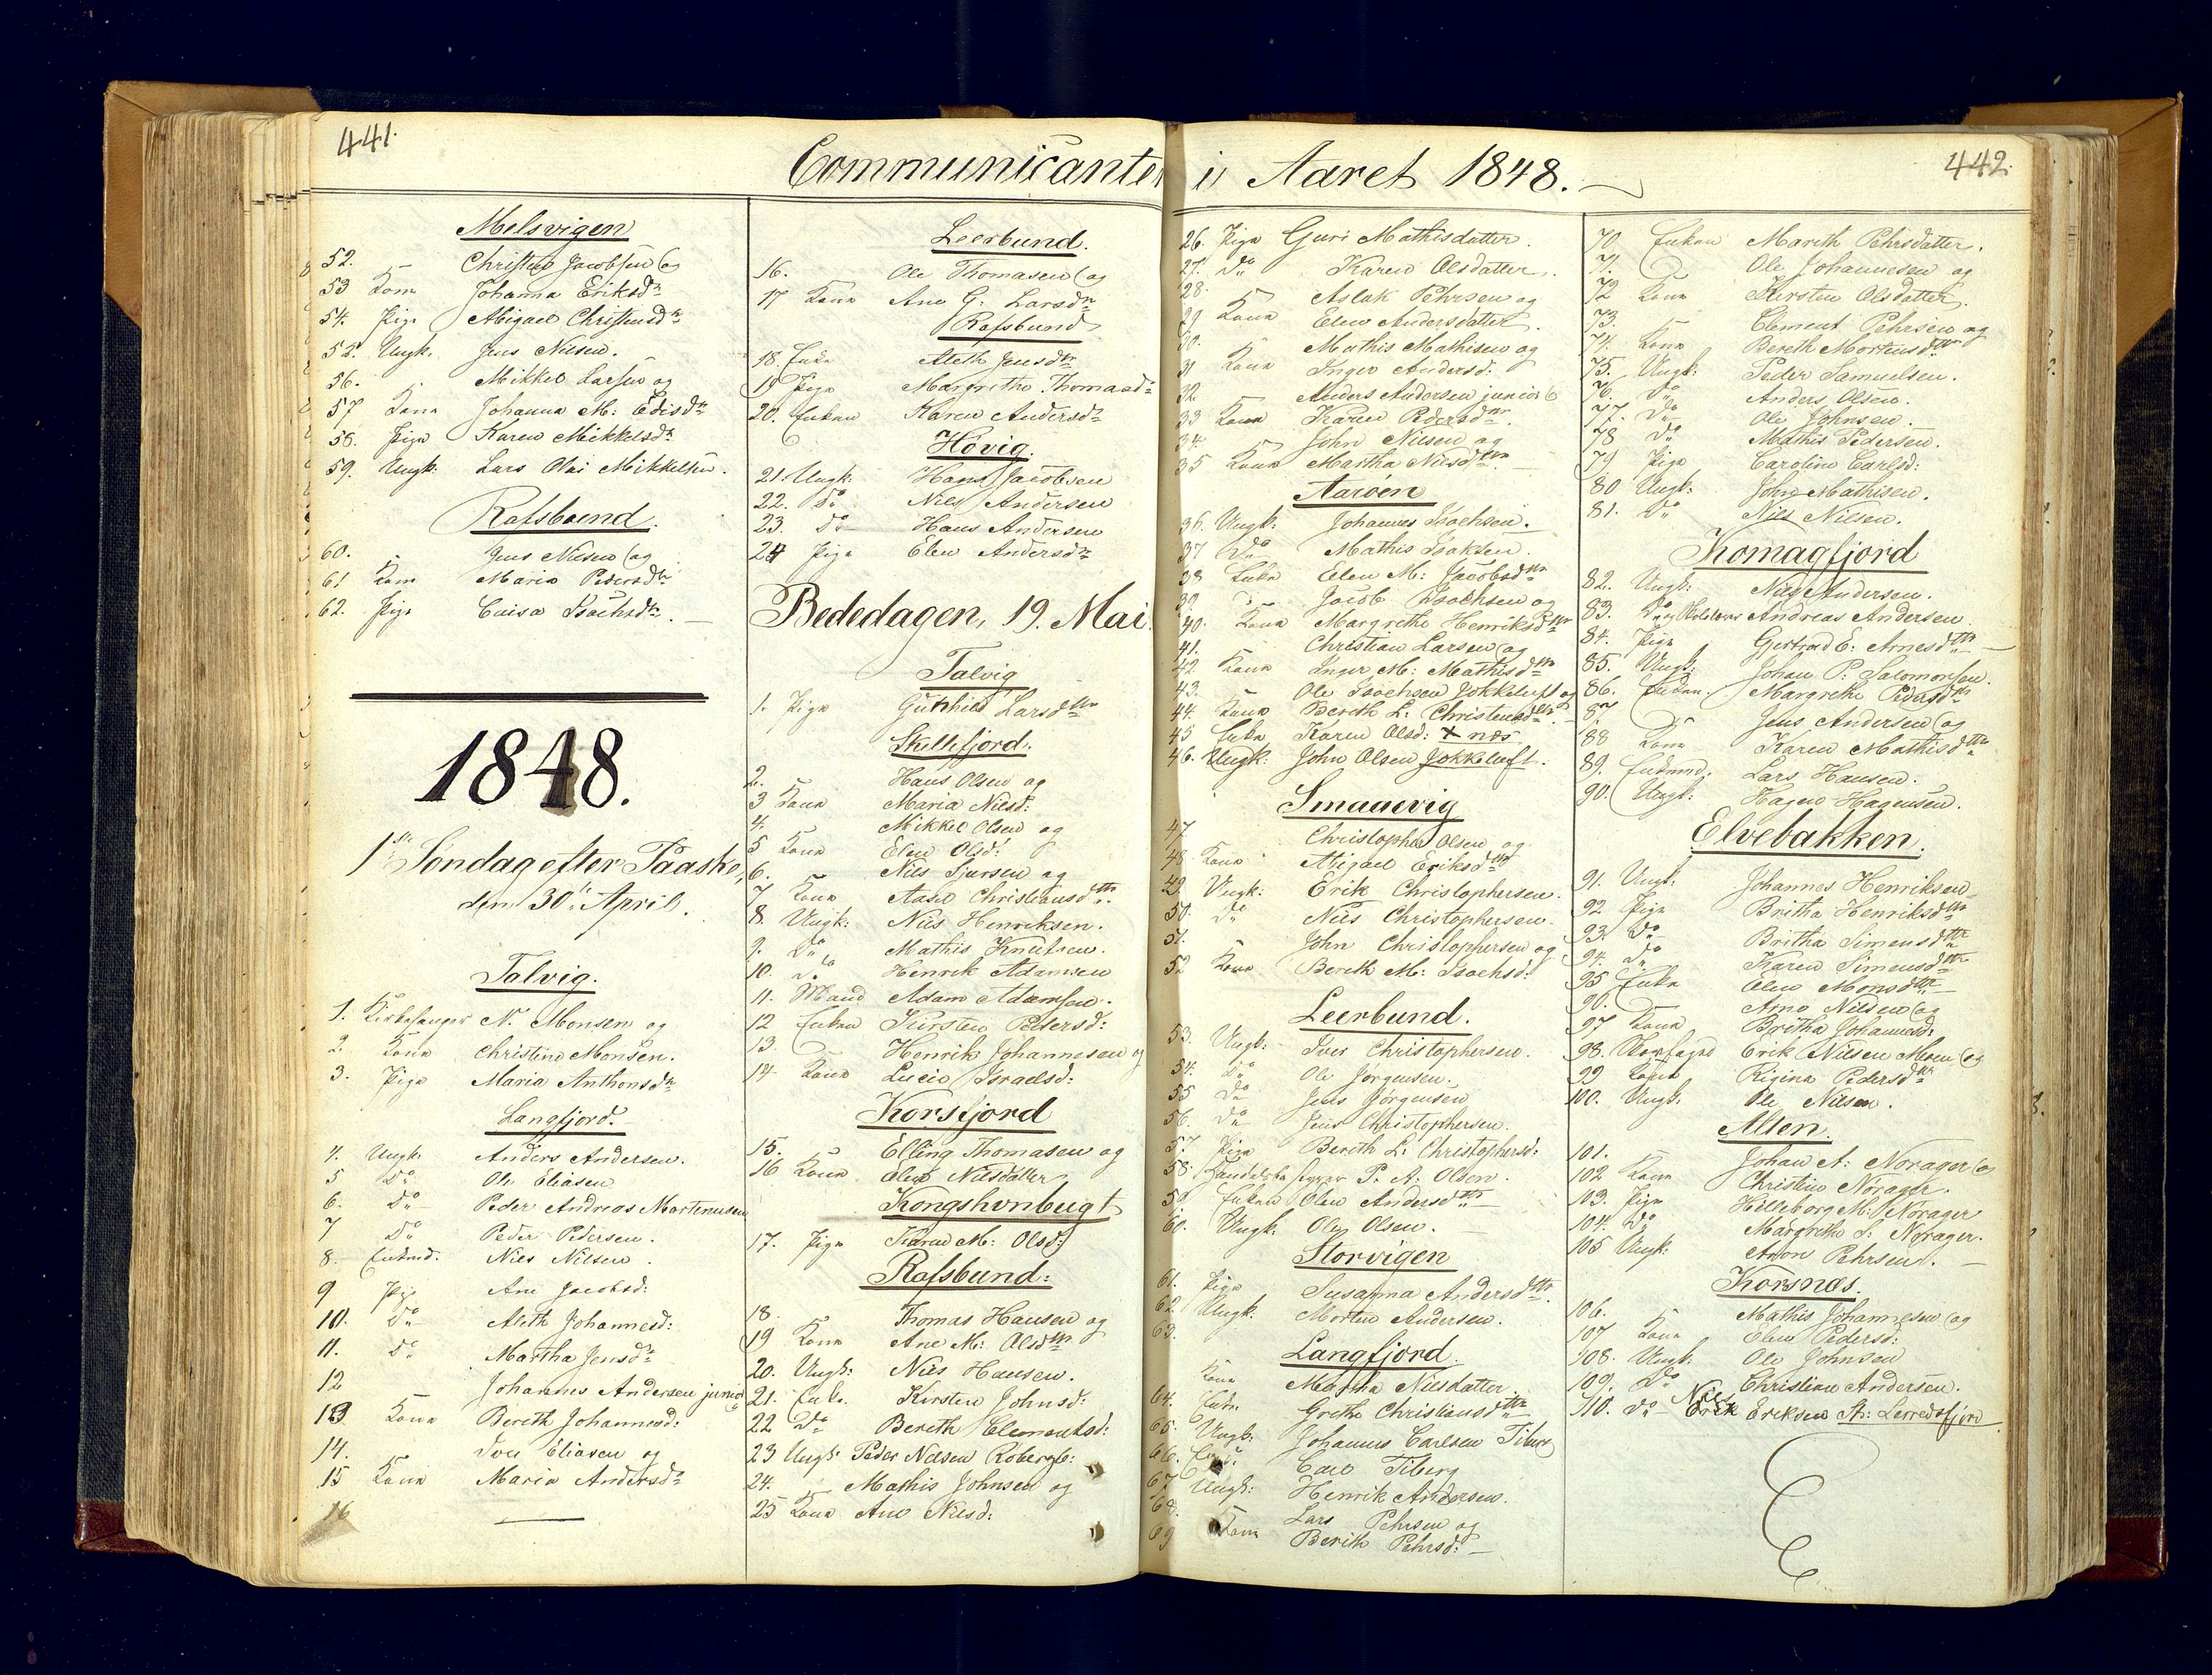 441.
Communicanter i Aaret 1848.
442.
Melsvigen
52. Christen Jacobsen og
53 Kone Johanna Eriksdr
54. Pige Abigael Christensdr
55. Ungk. Jens Nilsen.
56. Mikkel Larsen og
57 Kone Johanna M: Edisdr
58. Pige Karen Mikkelsdr
59. Ungk. Lars Olai Mikkelsen.
Rafsboend.
60. Jens Nilsen og
61 Kone Maria Pedersdr
62. Pige Luisa Isachsdr.
1848.
1ste Søndag efter Paaske,
den 30te April.
Talvig.
1. Kirkesanger N. Monsen og
2. Kone Christine Monsen.
3. Pige Maria Anthonsdr
Langfjord.
4. Ungk. Anders Andersen.
5 Do Ole Eliasen
6. Do Peder Andreas Martinusen
7 Do Peder Pedersen.
8. Enkmd. Niels Nilsen.
9 Pige Ane Jacobsd:
10. Do Aleth Johannesd:
11. Do Martha Jensdr
12 Johannes Andersen junior
13 Kone Bereth Johannesd:
14. Iver Eliasen og
15 Kone Maria Andersdr
16
Leerbund.
16. Ole Thomasen og
17 Kone Ane G: Larsdr
Rafsbund
18. Enke Aleth Jensdr
19 Pige Margrethe Thomasdr
20. Enken Karen Andersdr
Høvig.
21. Ungk: Hans Jacobsen
22. Do Niels Andersen
23. Do Hans Andersen
24 Pige Elen Andersdr
Bededagen, 19. Mai.
Talvig
1. Pige Gunhild Larsdttr
Skillefjord.
2. Hans Olsen og
3 Kone Maria Nilsd:
4. Mikkel Olsen og
5 Kone Elen Olsd:
6. Niels Sjursen og
7 Kone Aasel Christiansdttr.
8. Ungk: Nils Henriksen.
9. Do Mathis Knutsen.
10. Do Henrik Adamsen
11. Mand Adam Adamsen.
12 Enken Kirsten Pedersd:
13. Henrik Johannesen og
14 Kone Lucie Israelsd:
Korsfjord
15. Elling Thomasen og
16 Kone Elen Nilsdatter
Kongshvnbugt
17. Pige Karen M: Olsd:
Rafsbund:
18. Thomas Hansen og
19 Kone Ane M: Olsdttr
20. Ungk: Nils Hansen.
21. Enke. Kirsten Johnsd:
22 Do Bereth Clementsd:
23 Ungk: Peder Nilsen Robergb:
24. Mathis Johnsen og
25 Kone Ane Nilsd:
26. Pige Guri Mathisdatter.
27. Do Karen Olsdatter.
28. Aslak Pehrsen og
29 Kone Elen Andersdatter.
30. Mathis Mathisen og
31 Kone Inger Andersd:
32 Anders Andersen junior og
33 Kone Karen Pedersdttr.
34. John Nilsen og
35 Kone Martha Nilsdttr.
Aarøen
36. Ungk: Johannes Isachsen.
37 Do Mathis Isaksen.
38 Enke Elen M: Jacobsdttr
39. Jacob Isachsen og
40. Kone Margrethe Henriksdttr
41. Christian Larsen og
42 Kone Inger M: Mathisdttr
43. Ole Isachsen Jokkeluft og
44. Kone Bereth L: Christensdttr
45 Enke Karen Olsd: +næs
46. Ungk: John Olsen Jokkeluft.
Smaaevig
47. Christopher Olsen og
48 Kone Abigael Eriksdttr
49. Ungk: Erik Christophersen.
50. Do Nils Christophersen.
51. John Christophersen og
52 Kone Bereth M: Isachsd:
Leerbund.
53. Ungk: Iver Christophersen.
54. Do Ole Jørgensen.
55 Do Jens Jørgensen
56. Do Jens Christophersen.
57. Pige Bereth L: Christophersd:
58. Handelsbestyrer P. A. Olsen.
59 Enken Olen Andersdttr
60. Ungk: Ole Olsen.
Storvigen
61. Pige Susanna Andersdttr.
62. Ungk: Morten Andersen.
63.
Langfjord.
Kone Martha Nilsdatter.
64. Enke. Grethe Christiansdttr
65. Ungk: Johannes Carlsen Tiberg
66. Carl Tiberg
67 Ungk: Henrik Andersen.
68. Lars Pehrsen og
69 Kone Berith Pehrsd:
70. Enken Marith Pehrsdatter.
71. Ole Johannesen og
72 Kone Kirsten Olsdatter.
73. Clement Pehrsen og
74. Kone Bereth Mortensdttr
75. Ungk: Peder Samuelsen.
76. Do Anders Olsen.
77. Do Ole Johnsen.
78 Do Mathis Pedersen.
79 Pige Caroline Carlsd:
80 Ungk: John Mathisen.
81. Do Nils Nilsen.
Komagfjord
82. Ungk: Nils Andersen.
83. Do Andreas Andersen.
84. Pige Gjertrud E: Arnesdttr
85. Ungk: Johan P: Salomonsen.
86. Enken. Margrethe Pedersdttr
87 Jens Andersen og
88 Kone Karen Mathisdttr
89. Enkemd. Lars Hansen.
90. Ungk: Hagen Hagensen.
Elvebakken.
91. Ungk: Johannes Henriksen
92 Pige Britha Henriksdttr
93. Do Britha Simensdttr
94. Do Karen Simensdttr
95 Enke Olen Monsdttr
96. Arne Nilsen og
97 Kone Britha Johannesd:
98. Skovfogd Erik Nilsen Moen og
99 Kone Regina Pedersdttr
100. Ungk: Ole Nilsen.
Alten.
101. Johan A: Norager og
102 Kone Christine Norager.
103. Pige Hilleborg M: Norager
104. Do Margrethe S: Norager.
105 Ungk: Anon Pehrsen.
Korsnæs.
106. Mathis Johannesen og
107 Kone Elen Pedersd:
108. Ungk: Ole Johnsen
109. Do Christian Andersen.
110. Do Nils Eriksen St: Lerredsfjord